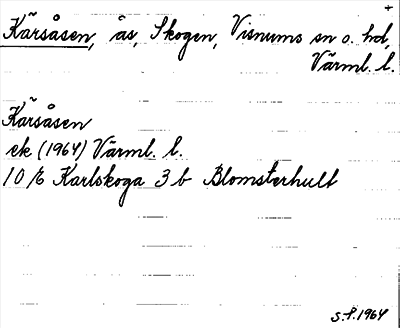 +
Kärsåsen, ås, Skogen, Visnums sn o. hd,
Värml. l.
Kärsåsen
ek (1964) Värml. l.
10/6 Karlskoga 3 b Blomsterhult
S.F. 1964